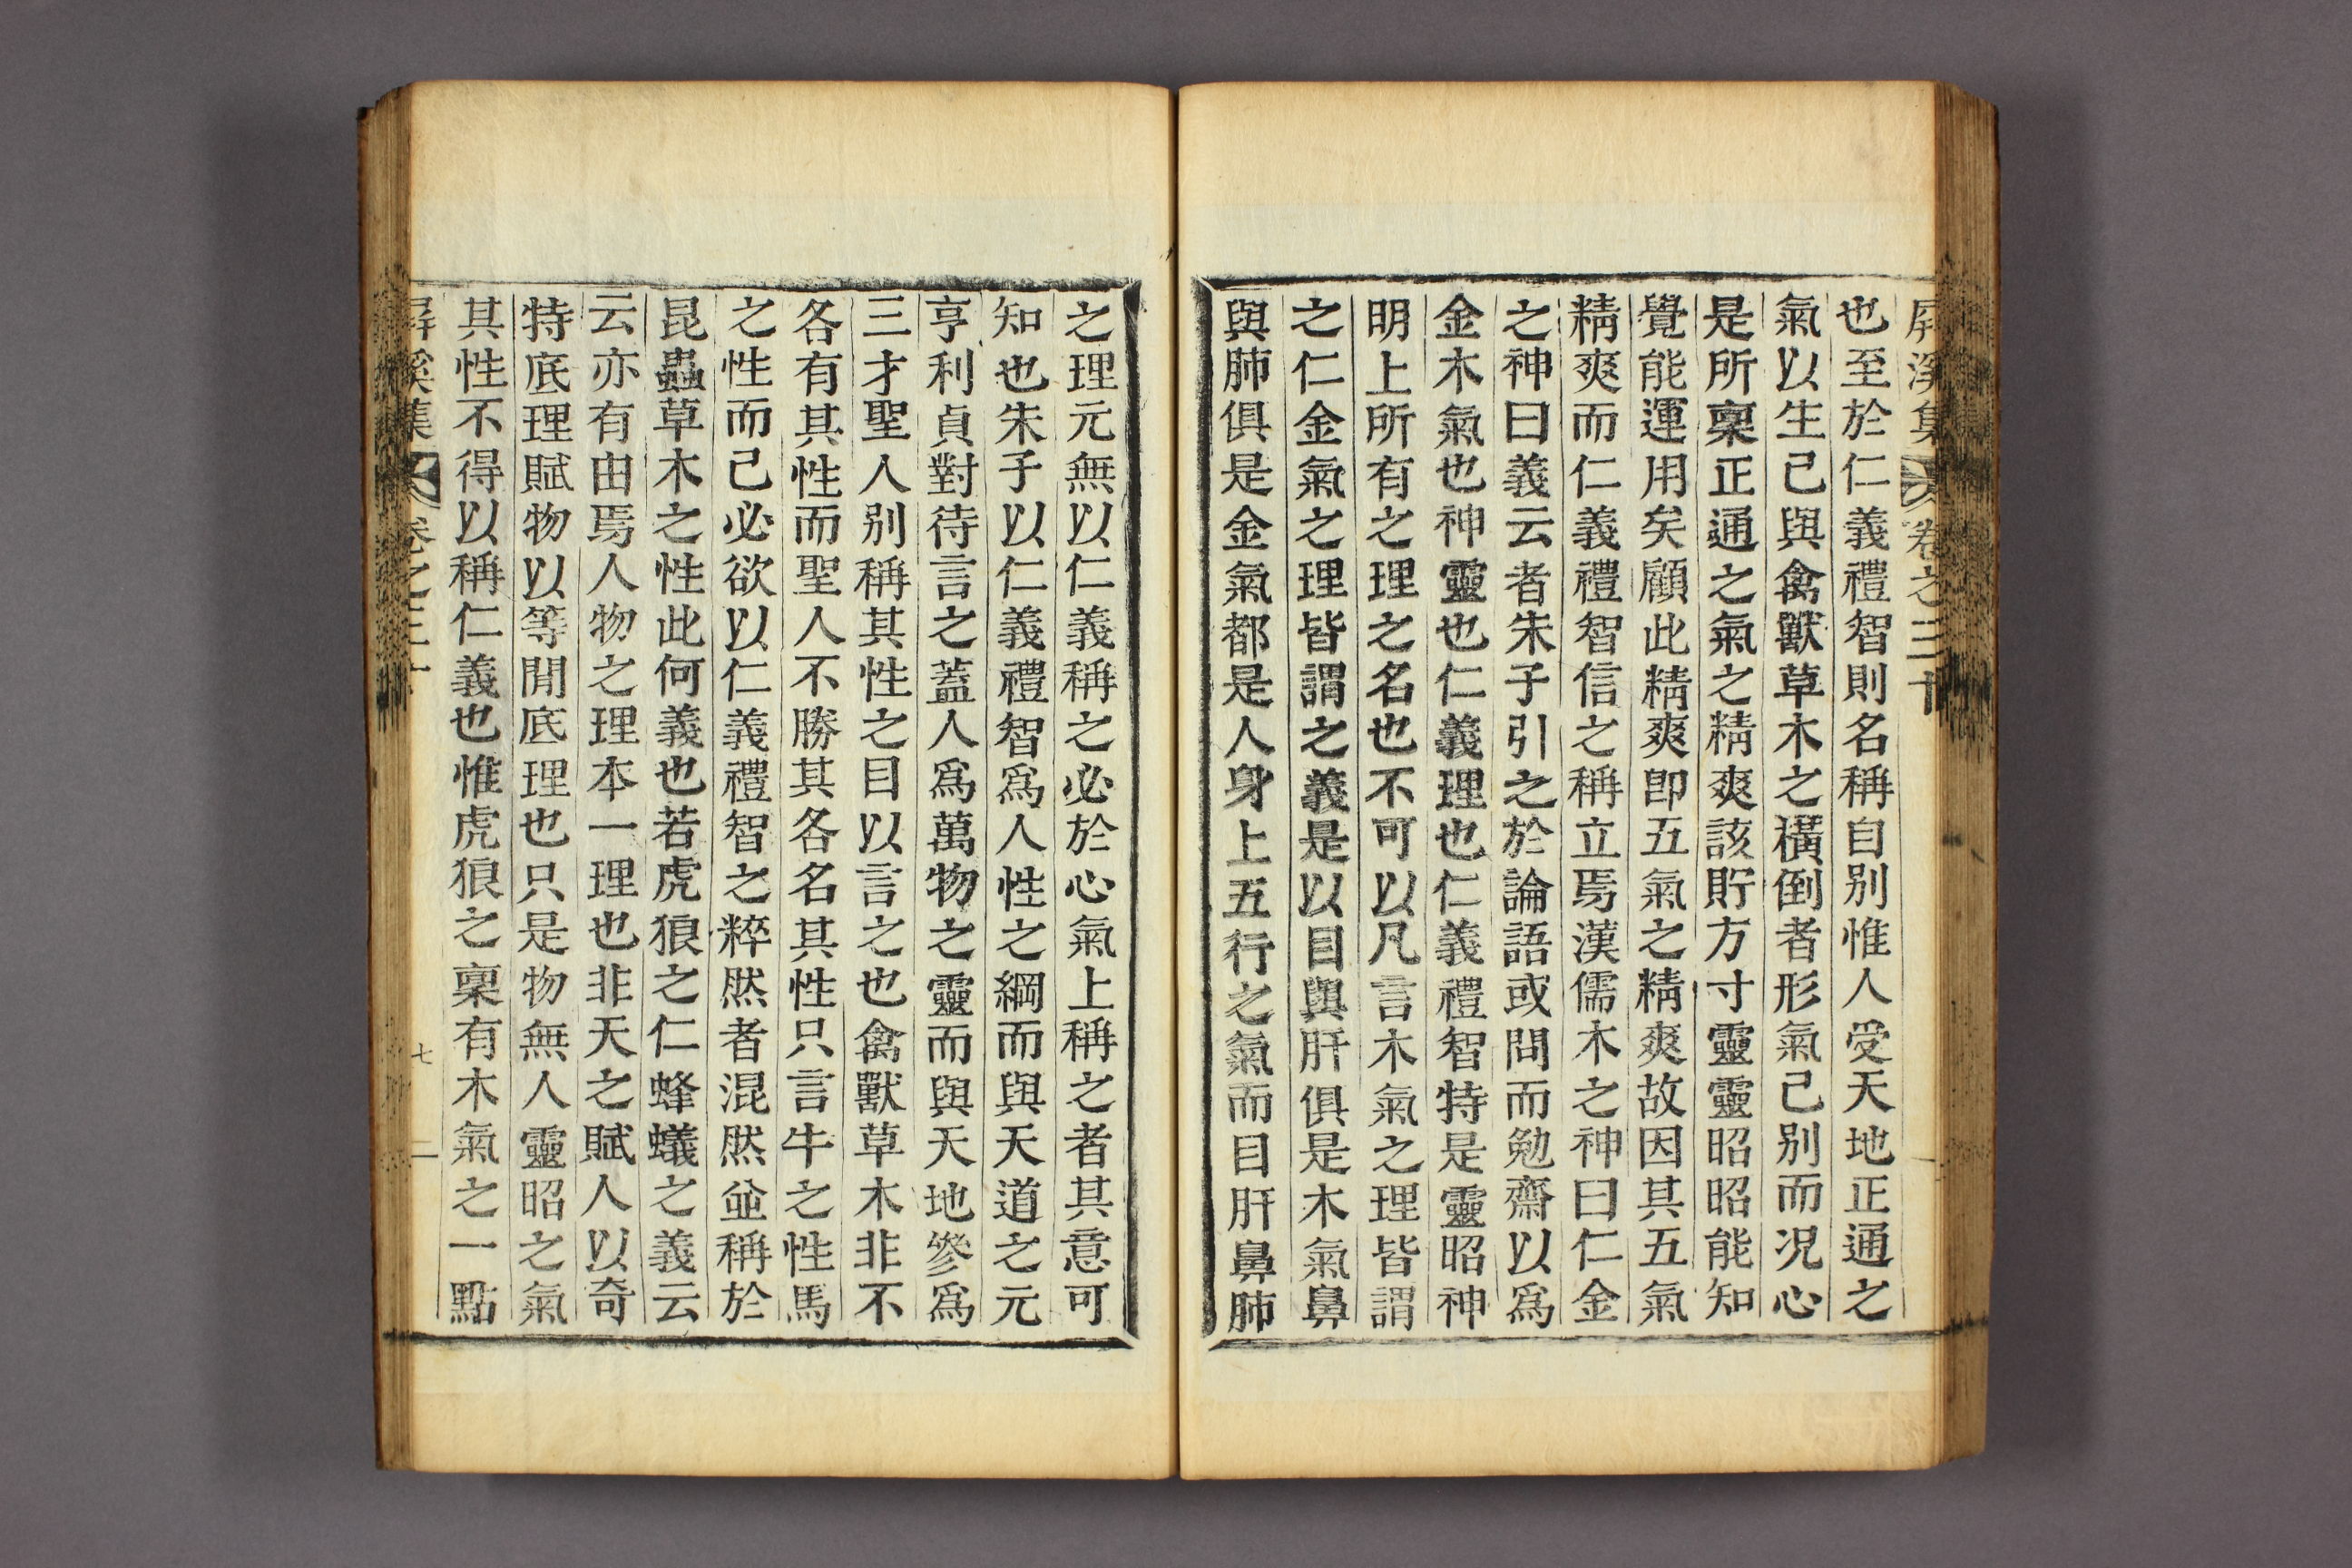 屛溪集 卷之三十
也至於仁義禮智則名稱自别惟人受天地正通之
氣以生己與禽獸草木之橫倒者形氣己别而况心
是所稟正通之氣之精爽該貯方寸靈靈昭昭能知
覺能運用矣顧此精爽卽五氣之精爽故因其五氣
精爽而仁義禮智信之稱立焉漢儒木之神曰仁金
之神曰義云者朱子引之於論語或問而勉齋以爲
金木氣也神靈也仁義理也仁義禮智特是靈昭神
明上所有之理之名也不可以凡言木氣之理皆謂
之仁金氣之理皆謂之義是以目與肝俱是木氣鼻
與肺俱是金氣都是人身上五行之氣而目肝鼻肺
之理元無以仁義稱之必於心氣上稱之者其意可
知也朱子以仁義禮智爲人性之綱而與天道之元
亨利貞對待言之蓋人爲萬物之靈而與天地叅爲
三才聖人别稱其性之目以言之也禽獸草木非不
各有其性而聖人不勝其各名其性只言牛之性馬
之性而己必欲以仁義禮智之粹然者混然並稱於
昆蟲草木之性此何義也若虎狼之仁蜂蟻之義云
云亦有由焉人物之理本一理也非天之賦人以奇
特底理賦物以等閒底理也只是物無人靈昭之氣
其性不得以稱仁義也惟虎狼之稟有木氣之一點
屛溪集 卷之三十 七